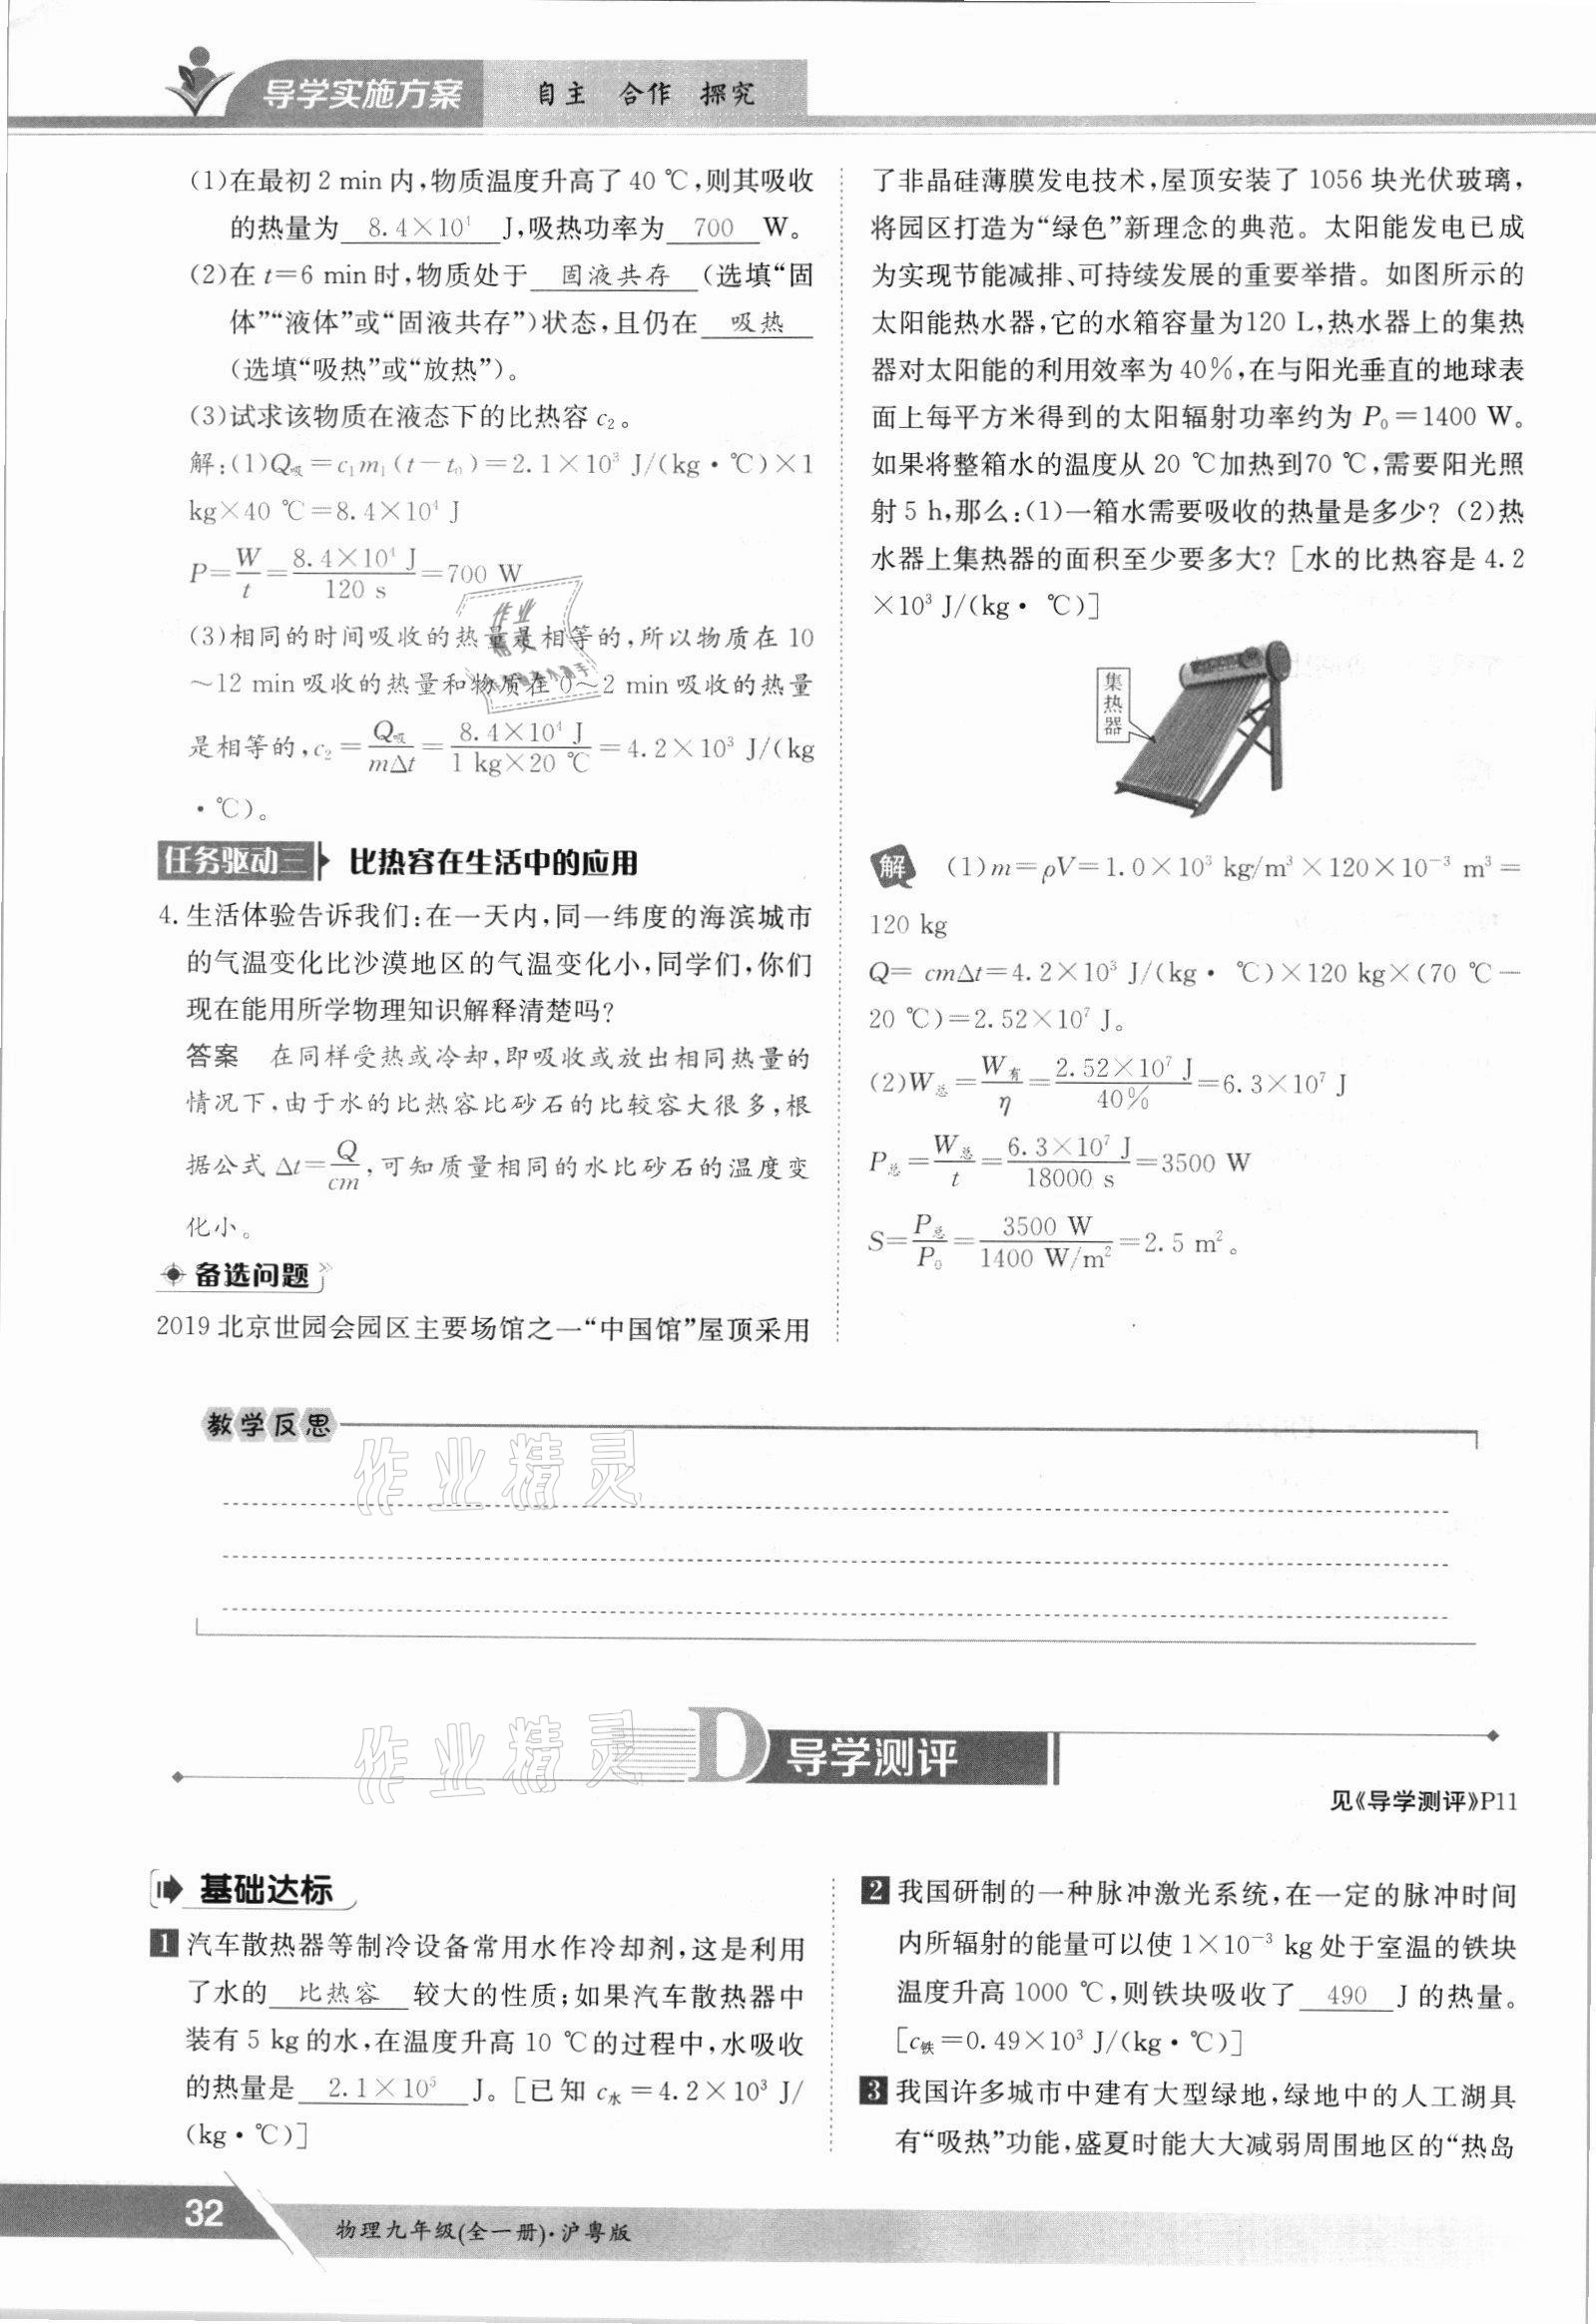 导学实施方案
自主 合作 探究
(1)在最初2 min内,物质温度升高了40 ℃,则其吸收
的热量为 8.4×10⁴ J,吸热功率为 700 W。
(2)在t=6 min时,物质处于 固液共存 (选填“固
体”“液体”或“固液共存”)状态,且仍在 吸热
(选填“吸热”或“放热”)。
(3)试求该物质在液态下的比热容c₂。
解:(1)Q吸=c₁m₁(t-t₀)=2.1×10³ J/(kg·℃)×1
kg×40 ℃=8.4×10⁴ J
P=W/t=8.4×10⁴ J/120 s=700 W
(3)相同的时间吸收的热量是相等的,所以物质在10
~12 min吸收的热量和物质在0~2 min吸收的热量
是相等的,c₂=Q吸/mΔt=8.4×10⁴ J/1 kg×20 ℃=4.2×10³ J/(kg
·℃)。
任务驱动三 比热容在生活中的应用
4.生活体验告诉我们:在一天内,同一纬度的海滨城市
的气温变化比沙漠地区的气温变化小,同学们,你们
现在能用所学物理知识解释清楚吗?
答案 在同样受热或冷却,即吸收或放出相同热量的
情况下,由于水的比热容比砂石的比较容大很多,根
据公式Δt=Q/cm,可知质量相同的水比砂石的温度变
化小。
备选问题
2019北京世园会园区主要场馆之一“中国馆”屋顶采用
了非晶硅薄膜发电技术,屋顶安装了1056块光伏玻璃,
将园区打造为“绿色”新理念的典范。太阳能发电已成
为实现节能减排、可持续发展的重要举措。如图所示的
太阳能热水器,它的水箱容量为120 L,热水器上的集热
器对太阳能的利用效率为40%,在与阳光垂直的地球表
面上每平方米得到的太阳辐射功率约为P₀=1400 W。
如果将整箱水的温度从20 ℃加热到70 ℃,需要阳光照
射5 h,那么:(1)一箱水需要吸收的热量是多少?(2)热
水器上集热器的面积至少要多大?[水的比热容是4.2
×10³ J/(kg· ℃)]
集热器
解 (1)m=ρV=1.0×10³ kg/m³×120×10⁻³ m³=
120 kg
Q= cmΔt=4.2×10³ J/(kg· ℃)×120 kg×(70 ℃-
20 ℃)=2.52×10⁷ J。
(2)W总=W有/η=2.52×10⁷ J/40%=6.3×10⁷ J
P总=W总/t=6.3×10⁷ J/18000 s=3500 W
S=P总/P₀=3500 W/1400 W/m²=2.5 m²。
教学反思
作业精灵
作业精灵
D 导学测评
见《导学测评》P11
基础达标
1 汽车散热器等制冷设备常用水作冷却剂,这是利用
了水的 比热容 较大的性质;如果汽车散热器中
装有5 kg的水,在温度升高10 ℃的过程中,水吸收
的热量是 2.1×10⁵ J。[已知c水=4.2×10³ J/
(kg·℃)]
2 我国研制的一种脉冲激光系统,在一定的脉冲时间
内所辐射的能量可以使1×10⁻³ kg处于室温的铁块
温度升高1000 ℃,则铁块吸收了 490 J的热量。
[c铁=0.49×10³ J/(kg·℃)]
3 我国许多城市中建有大型绿地,绿地中的人工湖具
有“吸热”功能,盛夏时能大大减弱周围地区的“热岛
32
物理九年级(全一册)·沪粤版